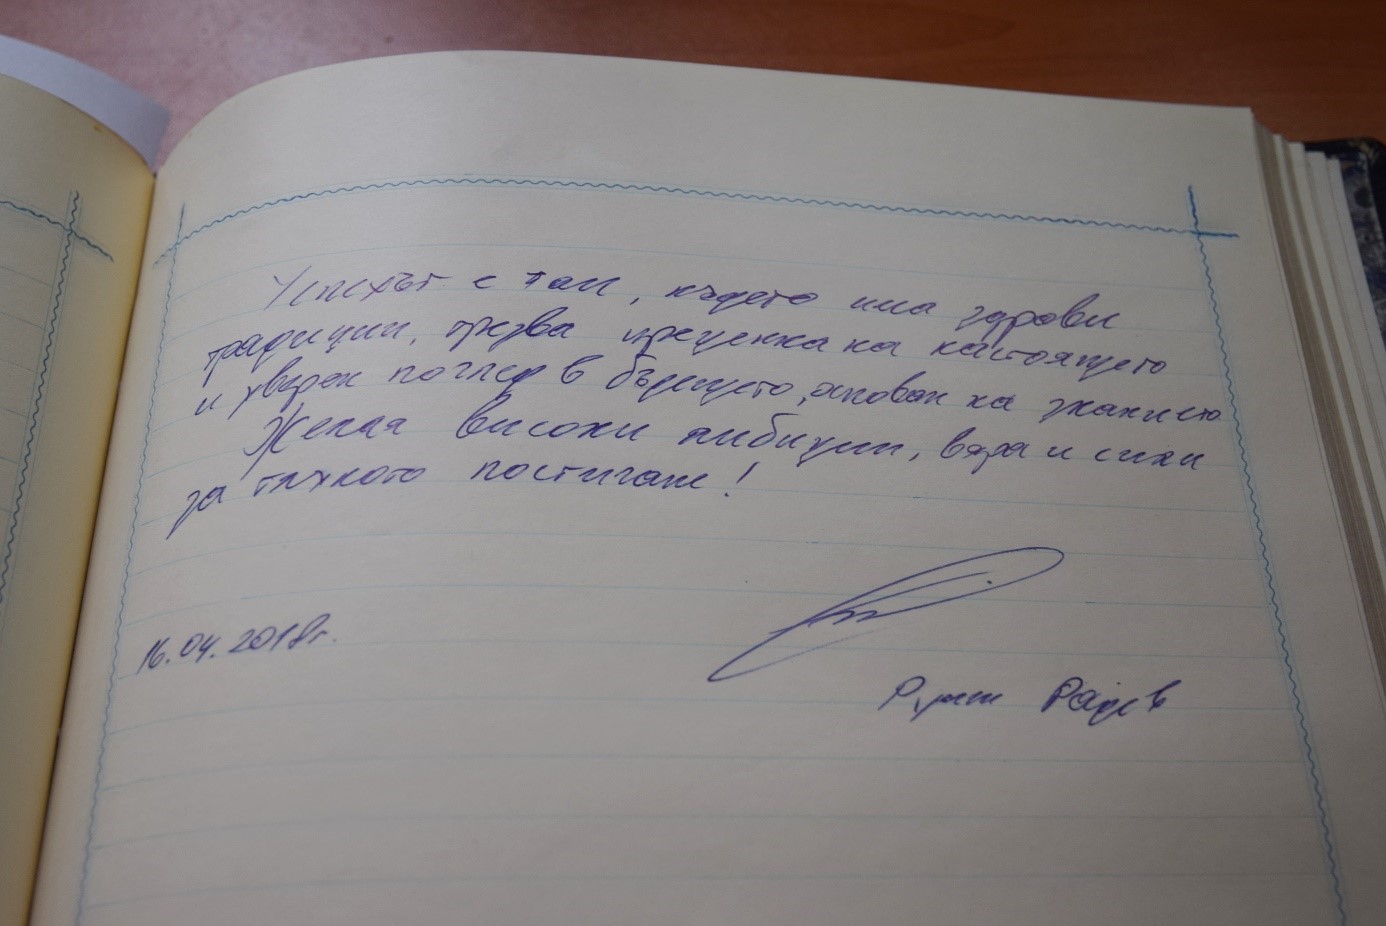 Успехът е там, където има здрави
традиции, трезва преценка на настоящето
и уверен поглед в бъдещето, основан на знанието
Желая високи амбиции, вяра и сили
за тяхното постигане!
16.04.2018г.
Румен Радев